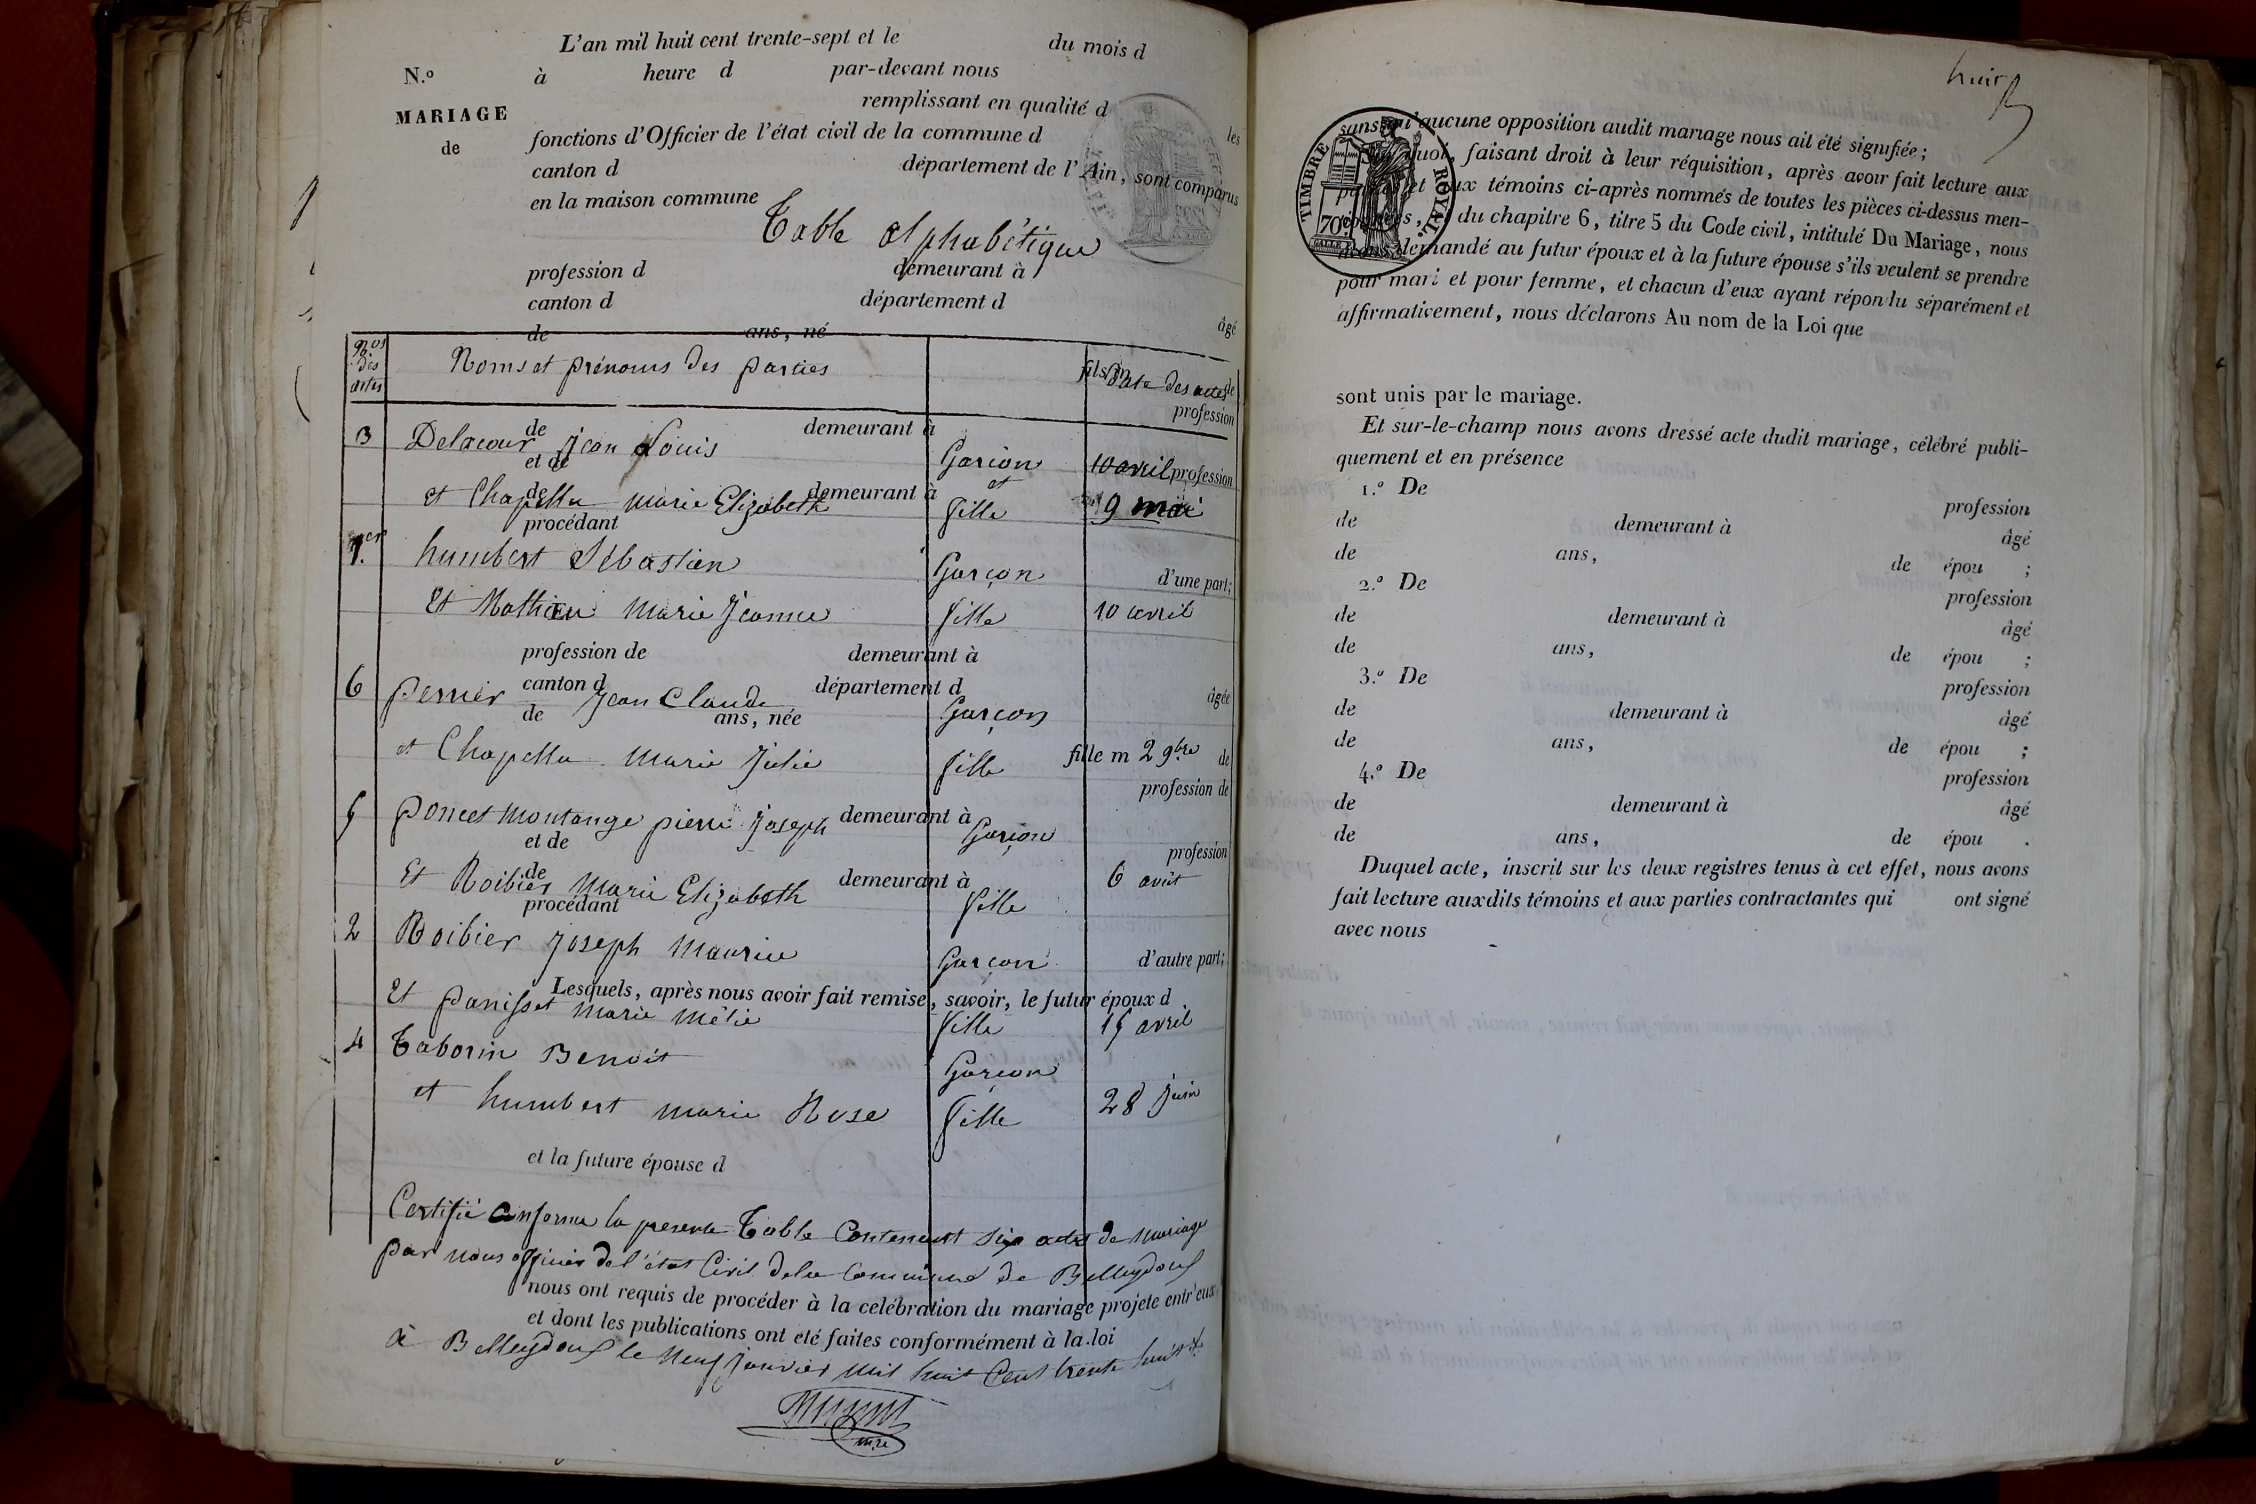 L'an mil huit cent trente-sept et le du mois d
N.o à heure d par-devant nous
MARIAGE remplissant en qualité d les
de fonctions d'Officier de l'état civil de la commune d
canton d département de l'Ain, sont comparus
en la maison commune
Table alphabétique
profession d demeurant à
canton d département d
de ans, né âgé
Nos des actes Noms et prénoms des parties fils m Date des actes de
profession
de demeurant à
3 Delacour Jean Louis Garçon 10 avril profession
et de et
de demeurant à
et Chapella marie Elizabeth fille 9 mai
procédant
1.er humbert Sébastien Garçon d'une part;
Et Mathieu Marie Jeanne fille 10 avril
profession de demeurant à
canton d département d
6 perrier Jean Claude Garçon âgée
de ans, née
et Chapella marie Julie fille fille m 2 9bre de
profession de
5 poncet montange pierre Joseph demeurant à Garçon
et de profession
de demeurant à
Et Roibier Marie Elizabeth fille 6 août
procédant
2 Roibier Joseph Maurice Garçon d'autre part;
Lesquels, après nous avoir fait remise, savoir, le futur époux d
Et panisset Marie Mélie fille 15 avril
4 Taborin Benoit Garçon
et humbert marie Rose fille 28 juin
et la future épouse d
Certifié conforme la presente Table Contenant six actes de Mariage
par nous officier de l'état Civil de la Commune de Belleydoux
nous ont requis de procéder à la celébration du mariage projete entr'eux
et dont les publications ont eté faites conformément à la loi
à Belleydoux le Neuf Janvier Mil huit Cent trente huit
huit
TIMBRE ROYAL
70c
sans qu'aucune opposition audit mariage nous ait été signifiée;
Sur quoi, faisant droit à leur réquisition, après avoir fait lecture aux
parties et aux témoins ci-après nommés de toutes les pièces ci-dessus men-
tionnées, et du chapitre 6, titre 5 du Code civil, intitulé Du Mariage, nous
avons demandé au futur époux et à la future épouse s'ils veulent se prendre
pour mari et pour femme, et chacun d'eux ayant répondu séparément et
affirmativement, nous déclarons Au nom de la Loi que
sont unis par le mariage.
Et sur-le-champ nous avons dressé acte dudit mariage, célébré publi-
quement et en présence
1.o De profession
de demeurant à âgé
de ans, de épou ;
2.o De profession
de demeurant à âgé
de ans, de épou ;
3.o De profession
de demeurant à âgé
de ans, de épou ;
4.o De profession
de demeurant à âgé
de ans, de épou .
Duquel acte, inscrit sur les deux registres tenus à cet effet, nous avons
fait lecture auxdits témoins et aux parties contractantes qui ont signé
avec nous